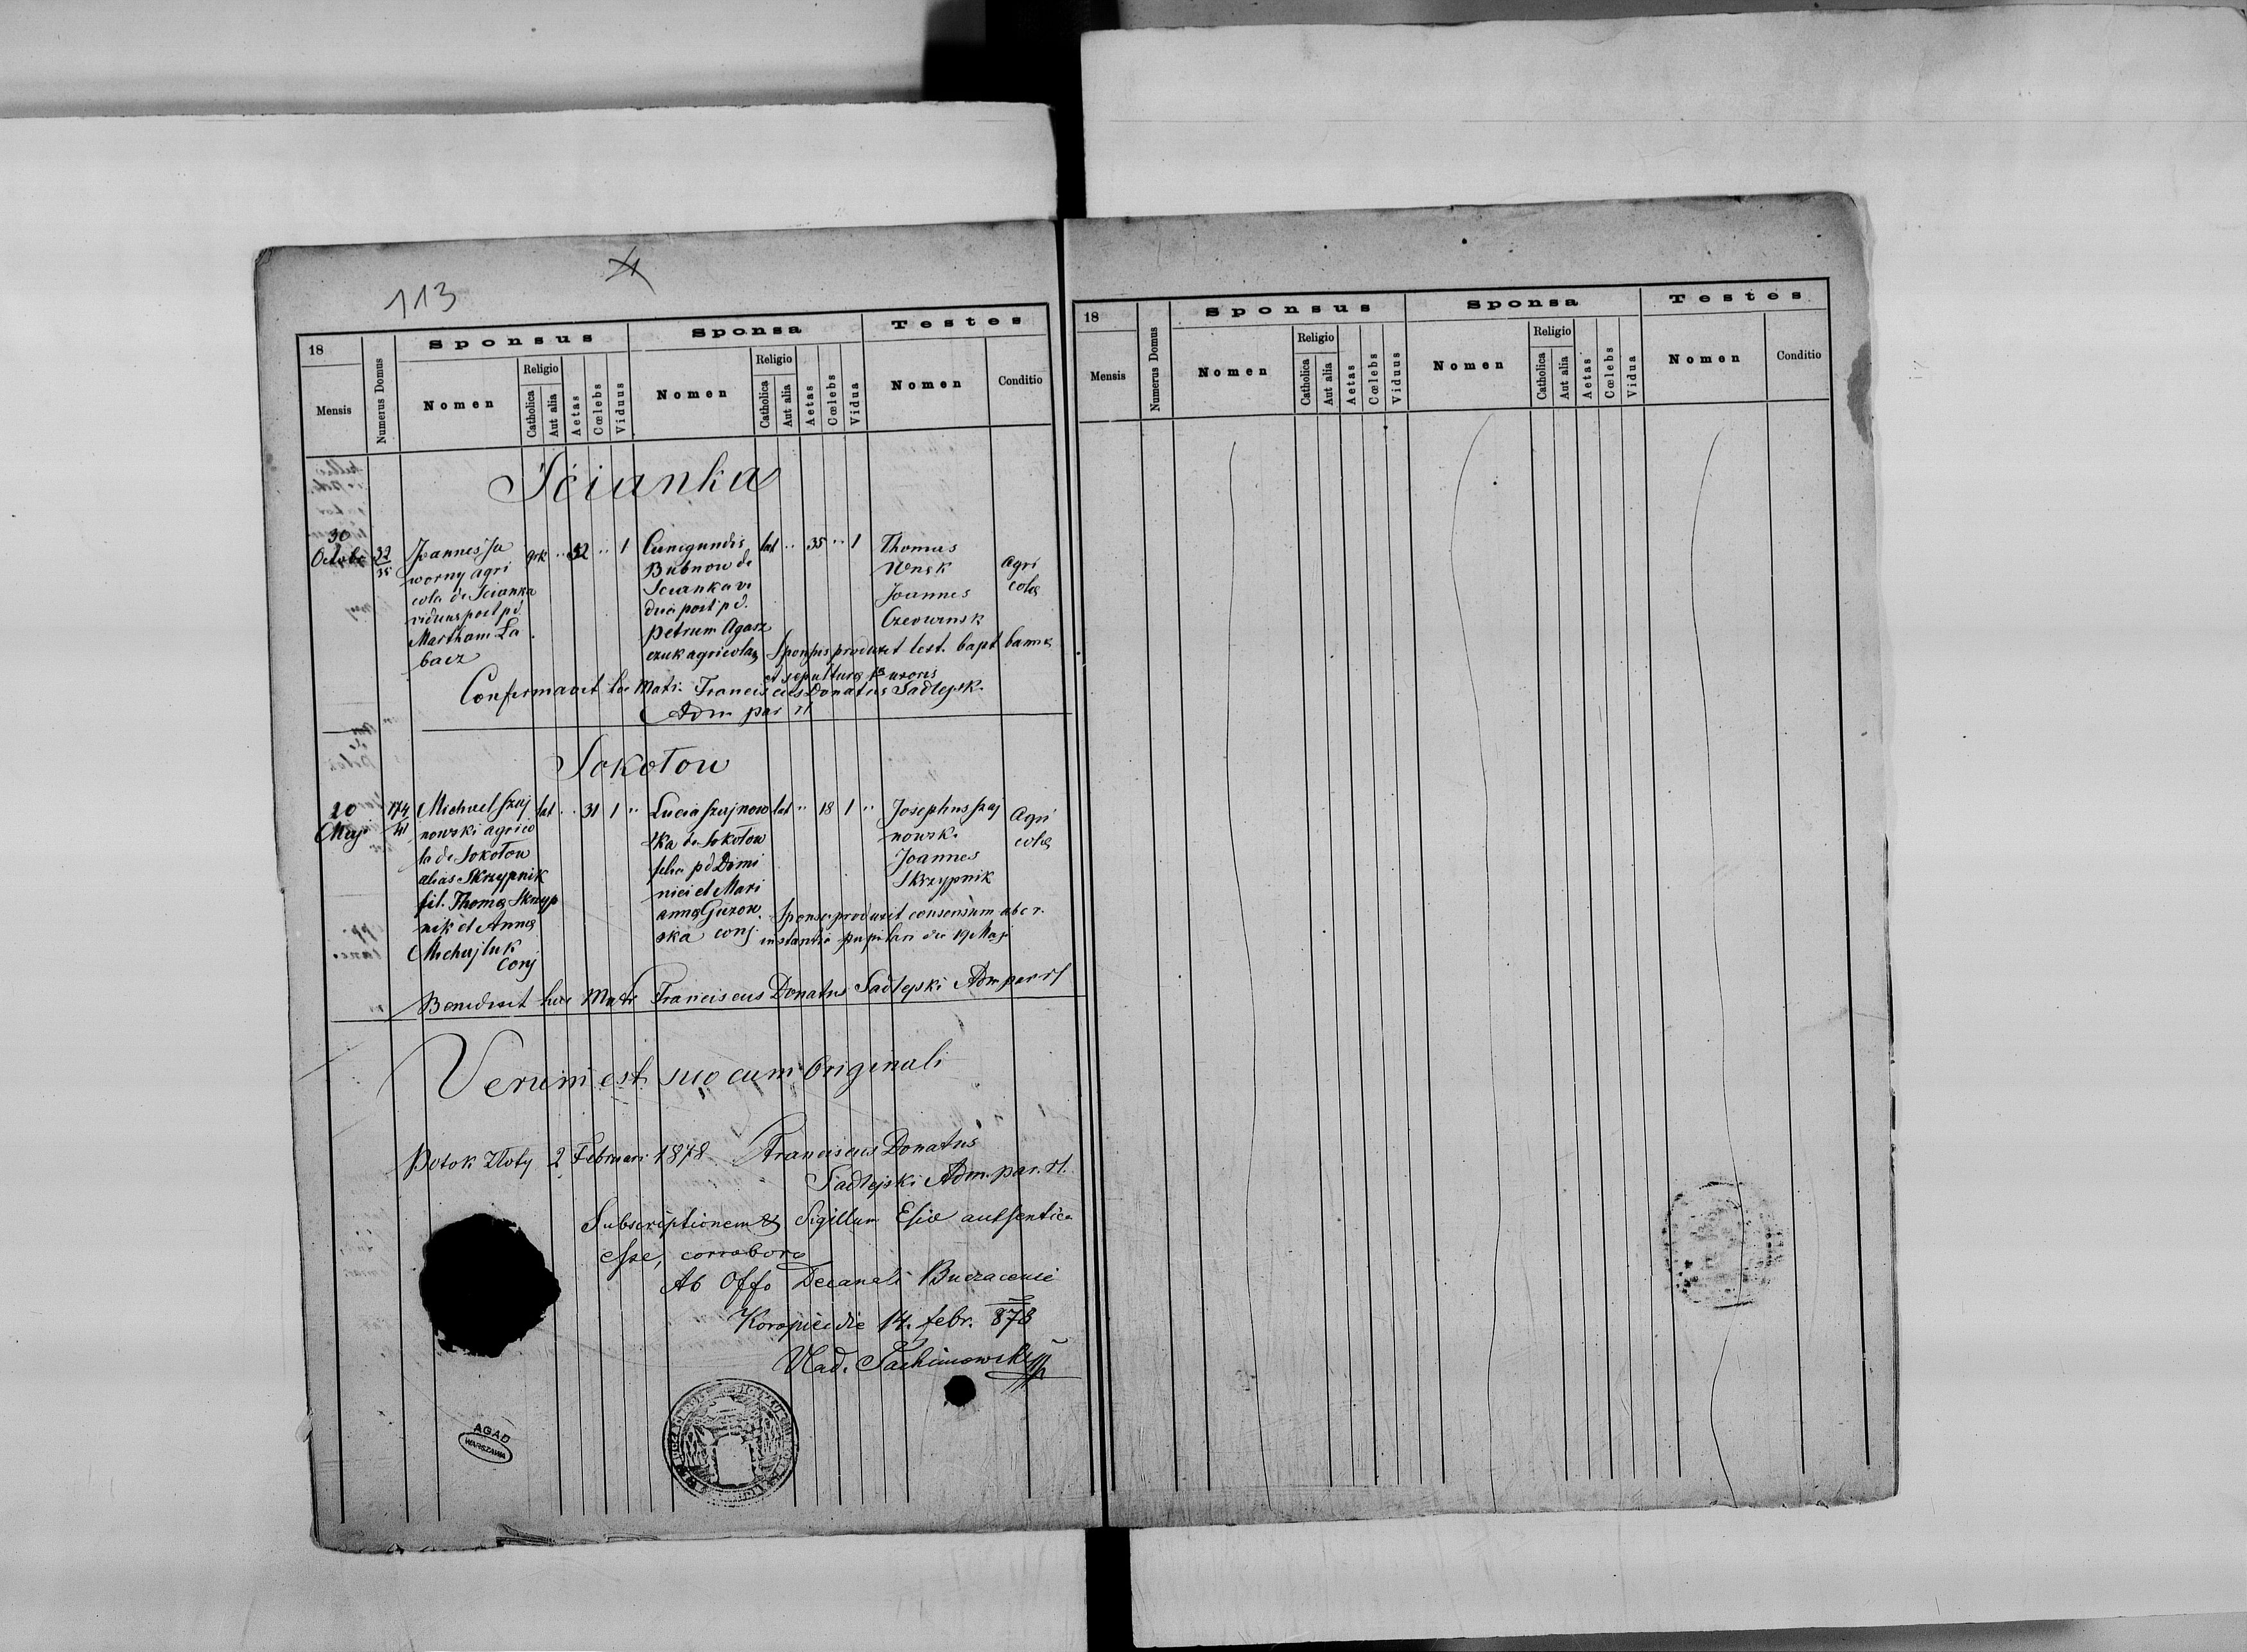 113
18
Mensis
Numerus Domus
Sponsus
Nomen
Religio
Catholica
Aut alia
Aetas
Cœlebs
Viduus
Sponsa
Nomen
Religio
Catholica
Aut alia
Aetas
Cœlebs
Vidua
Testes
Nomen
Conditio
Ścianka
30
Octobr
32
35
Joannes Ja
worny agri
cola de Scianka
viduus post pd
Martham Ła
bacz
grk " 52 " 1
Cunigundis
Bubnow de
Scianka vi
dua post pd.
Petrum Agasz
czuk agricolae
lat " 35 " 1
Thomas
Joannes
Agri
colae
Sponsus produxit test. bapt. bannor
et sepulturae uxoris
Confirmavit hoc Matr. Franciscus Donatus Sadlejski
Adm par rl
Sokołow
20
Maji
174
41
Michael Szaj
nowski agrico
la de Sokołow
alias Skrzypnik
fil. Thomae Skrzyp
nik et Annae
Michajluk
Conj
lat " 31 1 "
Lucia Szajnow
ska de Sokołow
filia pd Domi
nici et Mari
annae Guzow
ska conj
lat " 18 1 "
Josephus Szaj
nowski
Joannes
Skrzypnik
Agri
colae
Sponsa produxit consensum ab c. r.
instantia pupilari die 19 Maji
Benedixit hoc Matr Franciscus Donatus Sadlejski Adm par rl
Verum est suo cum Originali
Potok Złoty 2 Februari 1878. Franciscus Donatus
Sadlejski Adm. par. rl.
Subscriptionem & Sigillum Eccliae authentica
esse, corroboro
Ab Offo Decanali Buczacensi
Koropiec die 14. febr. 878
AGAD
WARSZAWA
18
Mensis
Numerus Domus
Sponsus
Nomen
Religio
Catholica
Aut alia
Aetas
Cœlebs
Viduus
Sponsa
Nomen
Religio
Catholica
Aut alia
Aetas
Cœlebs
Vidua
Testes
Nomen
Conditio